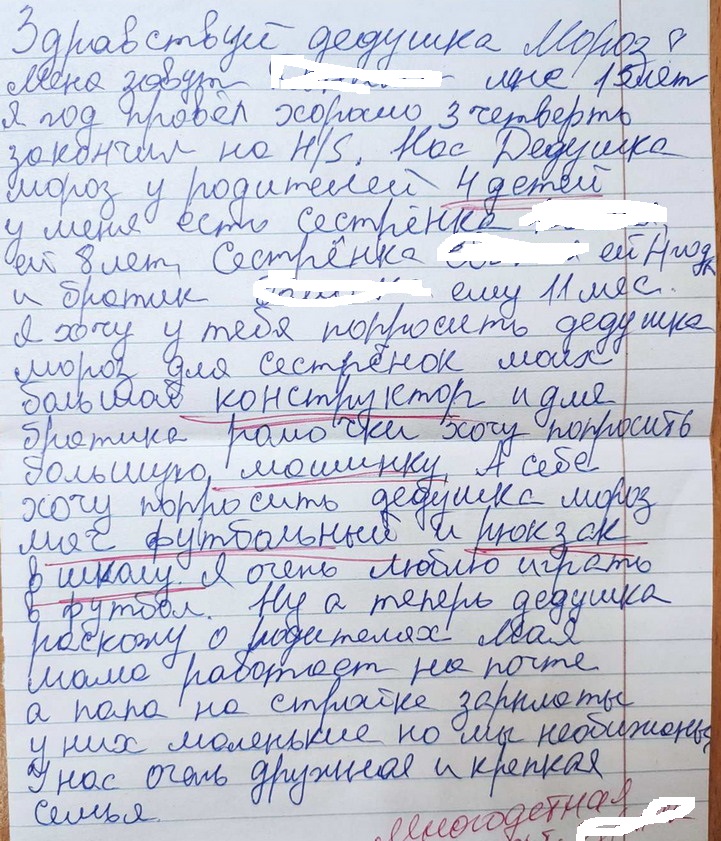 Здравствуй дедушка Мороз
Меня зовут мне 15лет
я год провёл хорошо 3 четверть
закончил на 4/5. Нас Дедушка
мороз у родителей 4 детей
у меня есть сестрёнка
ей 8 лет, Сестрёнка ей 4 года
и братик ему 11 мес.
я хочу у тебя попросить дедушка
мороз для сестрёнок моих
большой конструктор и для
братика хочу попросить
большую машинку А себе
хочу попросить дедушка мороз
мяч футбольный и рюкзак
в школу. Я очень люблю играть
в футбол. Ну а теперь дедушка
раскажу о родителях Моя
мама работает на почте
а папа на стройке зарплаты
у них маленькие но мы необижаны
У нас очень дружная и крепкая
семья
Многодетная